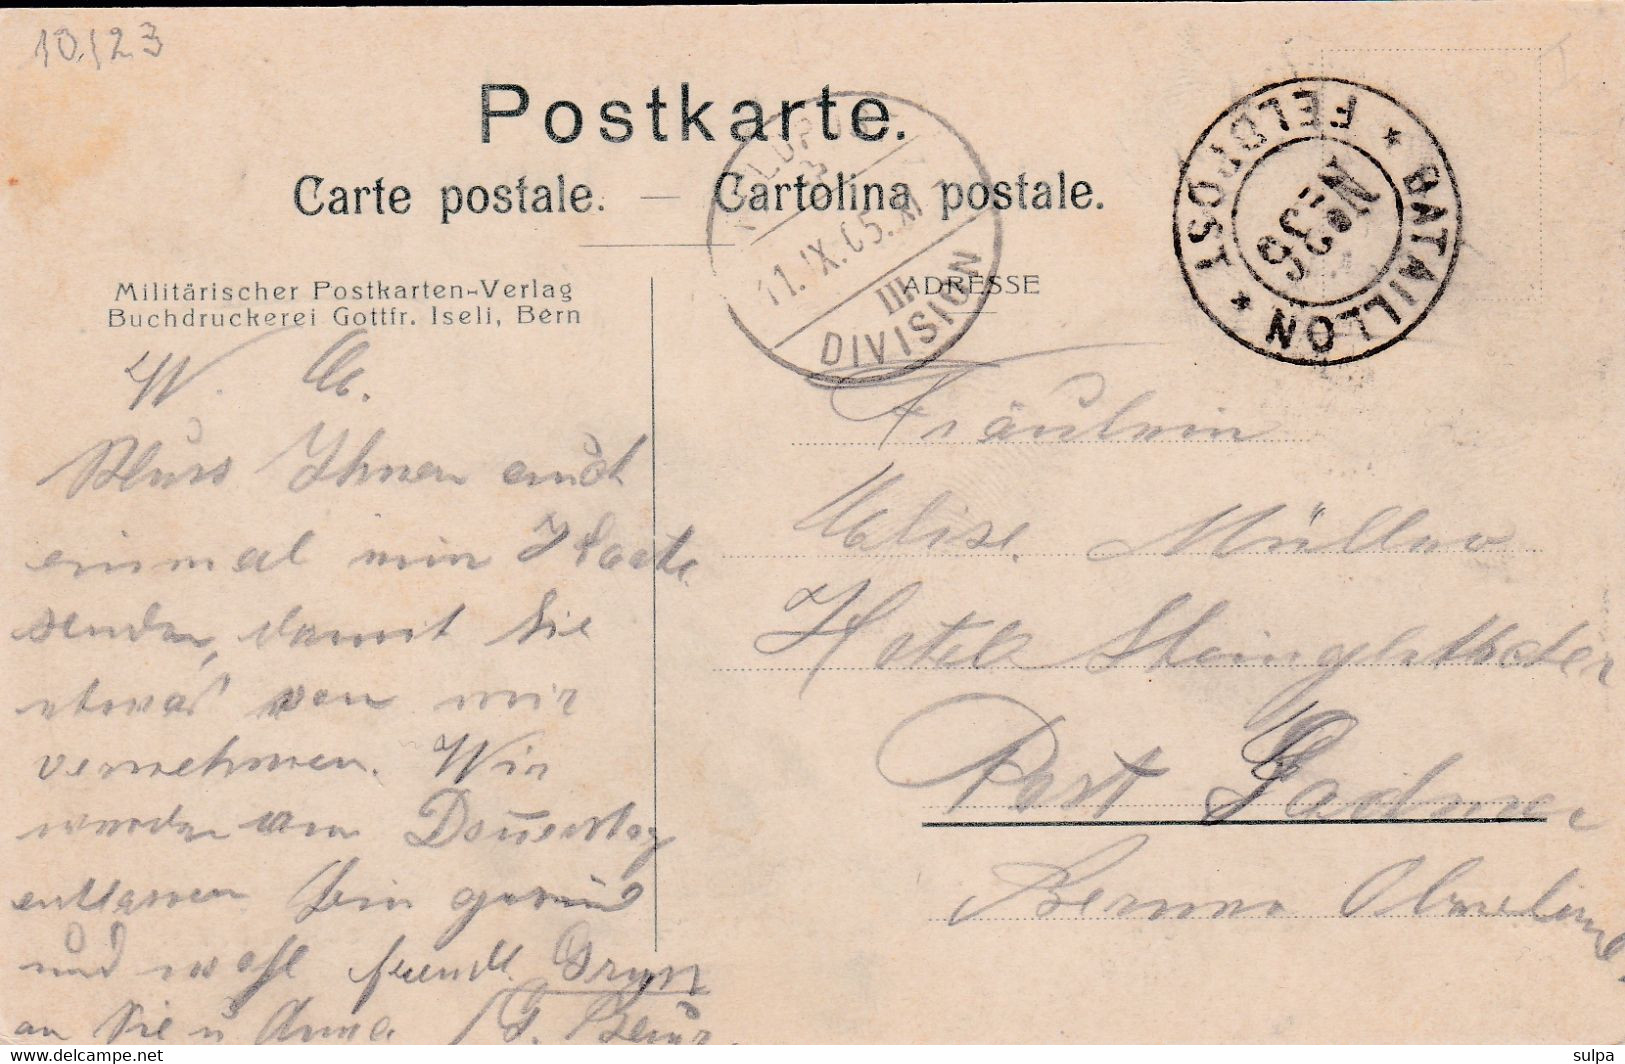 10./23
Postkarte.
Carte postale. — Cartolina postale.
FELDPOST
11. IX. 05. XI
III.
DIVISION
* BATAILLON * FELDPOST
No 39
Militärischer Postkarten-Verlag
Buchdruckerei Gottfr. Iseli, Bern
ADRESSE
W. E.
Muss Ihnen auch
einmal ein Karte
senden, damit Sie
etwas von mir
vernehmen. Wir
werden am Donnerstag
entlassen. Bin gesund
und wohl freundl. Grüsse
an Sie u Anna G.
Fräulein
Elise. Müller
Hotel Steingletscher
Post Gadmen
Berner Oberland.
delcampe.net
sulpa